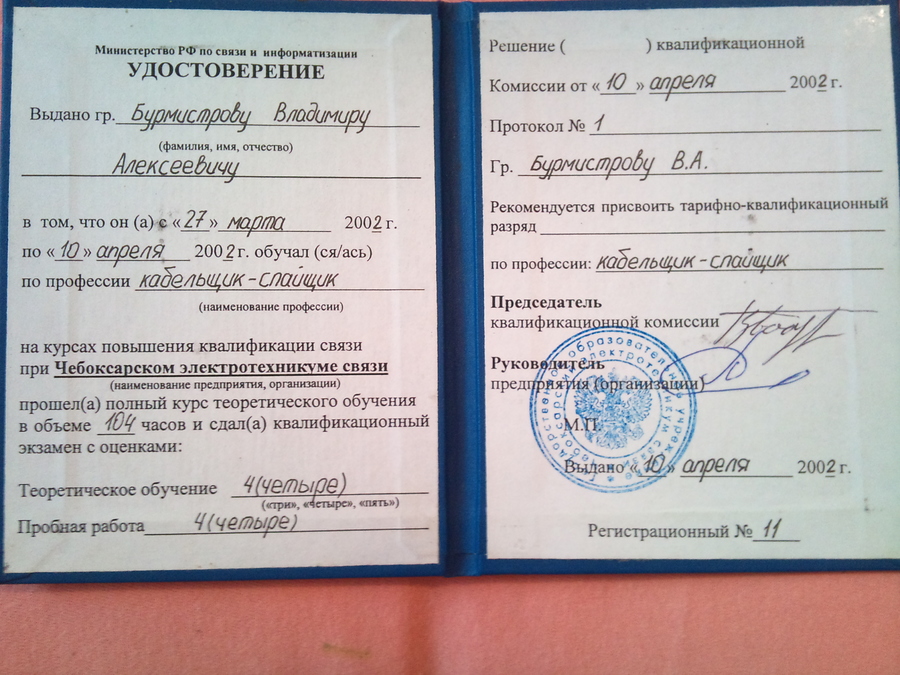 Министерство РФ по связи и информатизации
УДОСТОВЕРЕНИЕ
Выдано гр. Бурмистрову Владимиру
(фамилия, имя, отчество)
Алексеевичу
в том, что он (а) с «27» марта 2002 г.
по «10» апреля 2002 г. обучал (ся/ась)
по профессии кабельщик-спайщик
(наименование профессии)
на курсах повышения квалификации связи
при Чебоксарском электротехникуме связи
(наименование предприятия, организации)
прошел(а) полный курс теоретического обучения
в объеме 104 часов и сдал(а) квалификационный
экзамен с оценками:
Теоретическое обучение 4(четыре)
(«три», «четыре», «пять»)
Пробная работа 4(четыре)
Решение ( ) квалификационной
Комиссии от «10» апреля 2002 г.
Протокол № 1
Гр. Бурмистрову В.А.
Рекомендуется присвоить тарифно-квалификационный
разряд
по профессии: кабельщик-спайщик
Председатель
квалификационной комиссии
Руководитель
предприятия (организации)
М.П.
Выдано «10» апреля 2002 г.
Регистрационный № 11